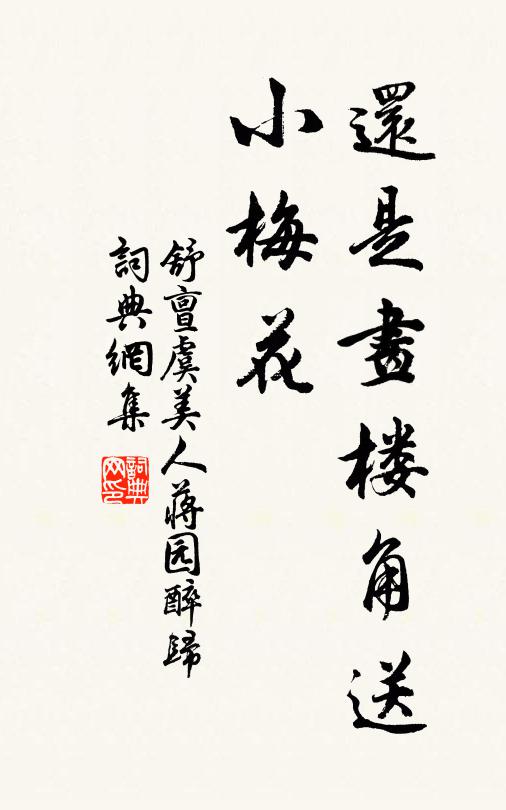 還是畫楼角送
小梅花
舒亶虞美人蒋园醉歸
詞典網集
詞典网印